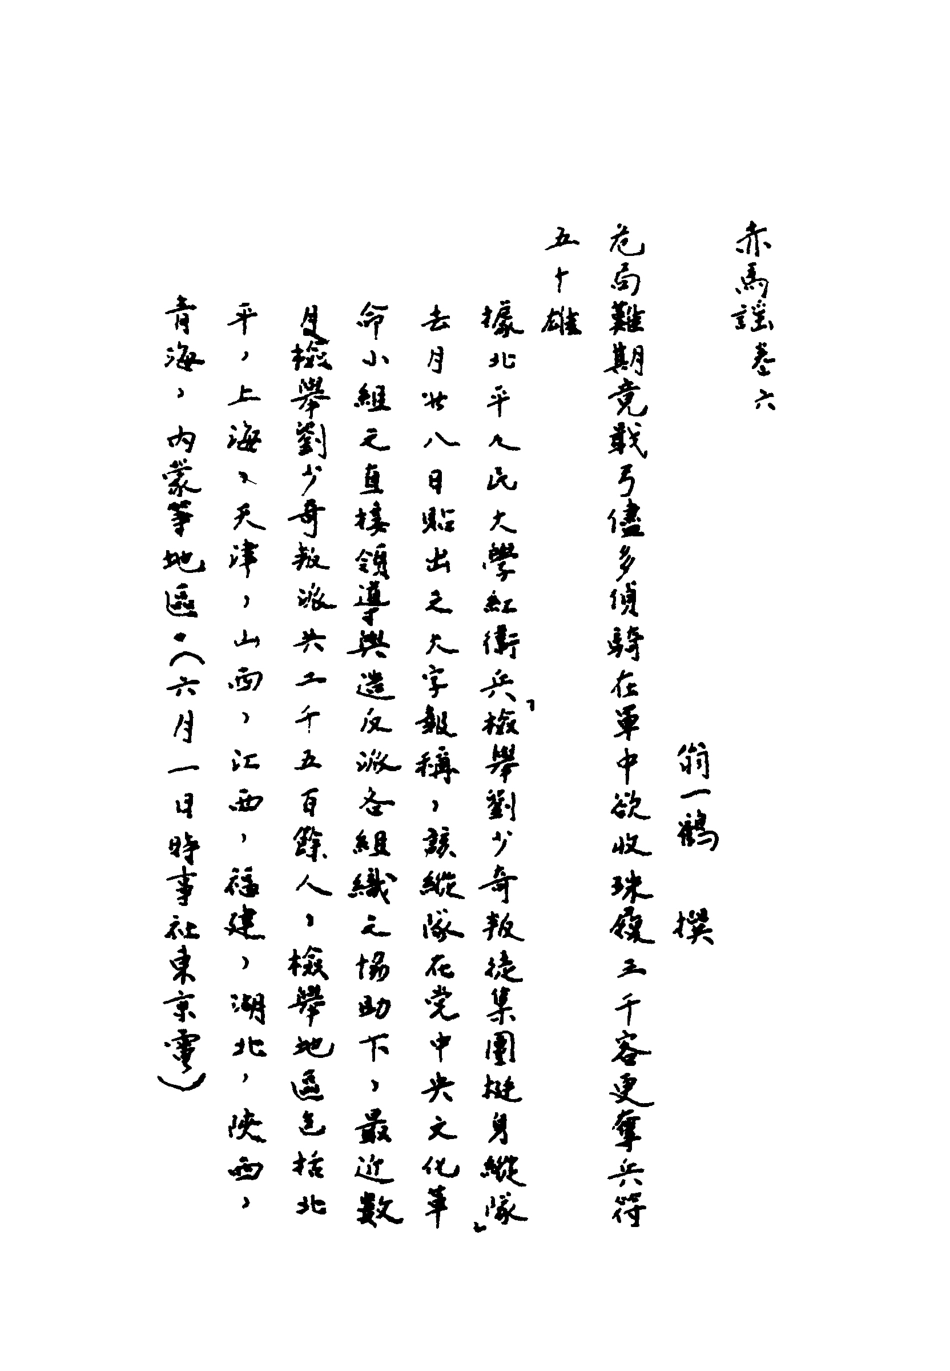 赤馬謠卷六
翁一鶴 撰
危局難期竟戢弓儘多偵騎在軍中欲收珠履三千客更奪兵符
五十雄
據北平人民大學紅衛兵「檢舉劉少奇叛徒集團挺身縱隊」
去月廿八日貼出之大字報稱,該縱隊在党中央文化革
命小組之直接領導與造反派各組織之協助下,最近數
月檢舉劉少奇叛派共二千五百餘人,檢舉地區包括北
平,上海,天津,山西,江西,福建,湖北,陝西,
青海,內蒙等地區。(六月一日時事社東京電)